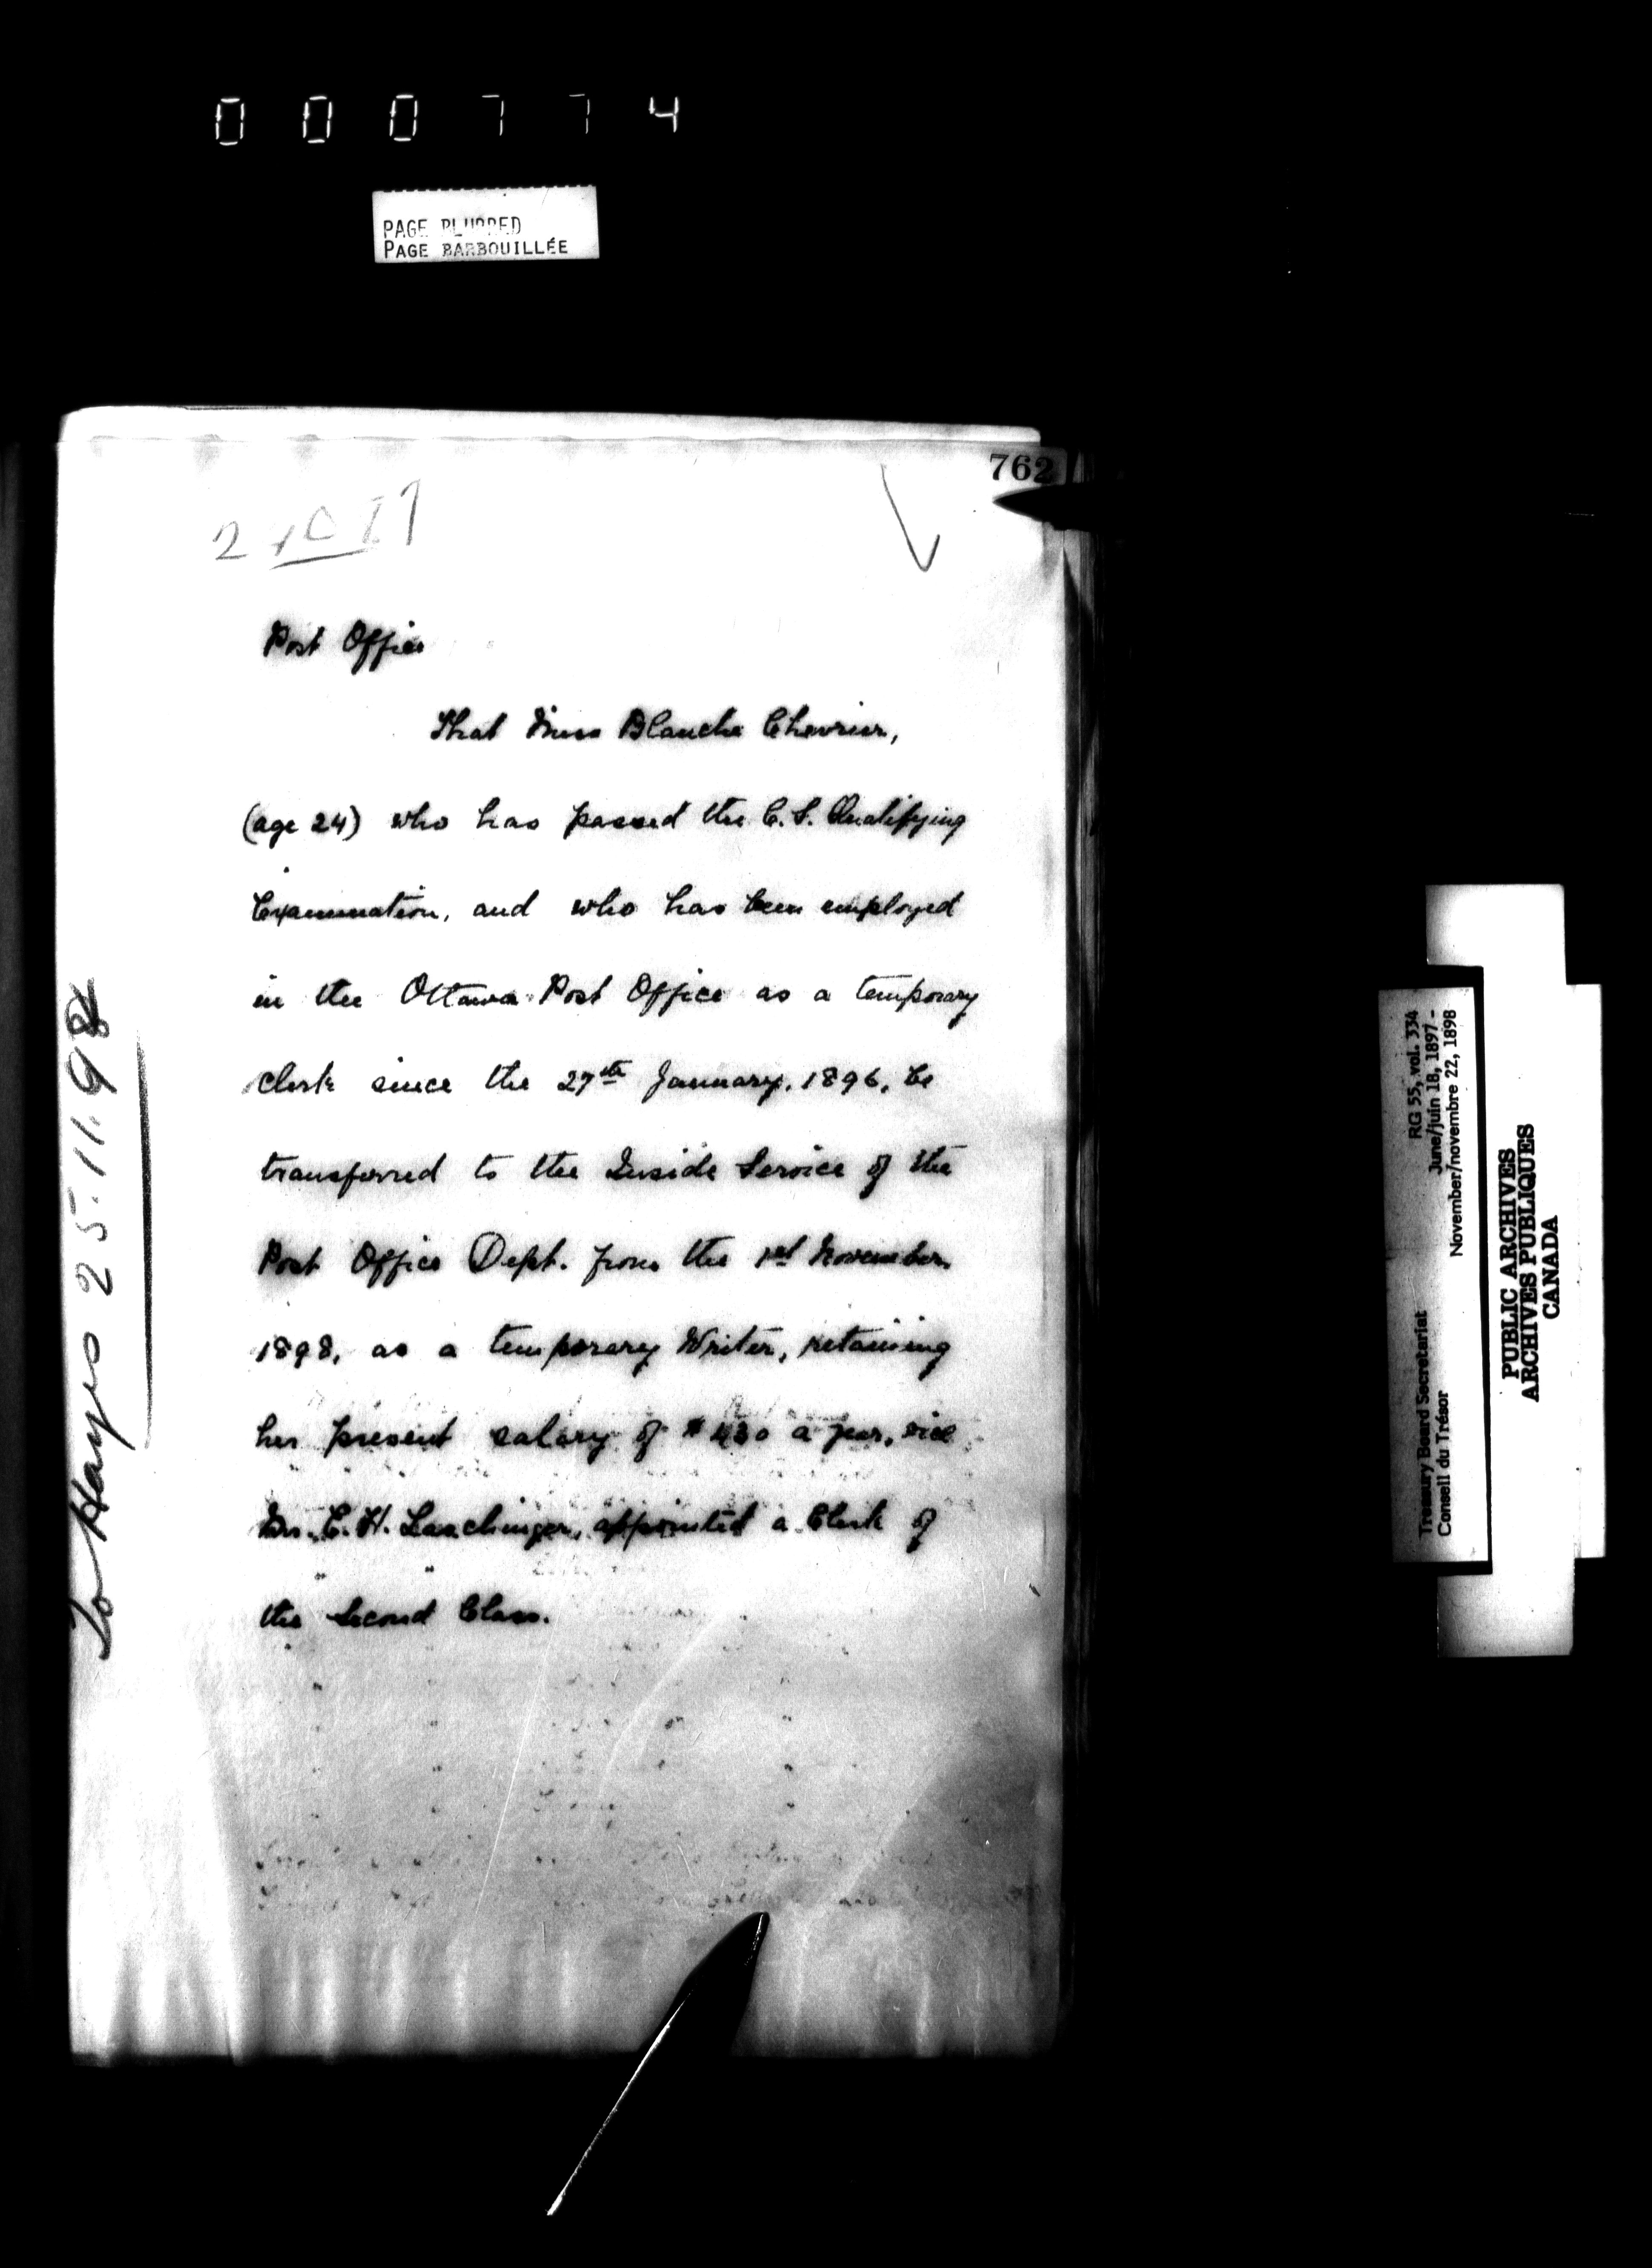 000774
PAGE BLURRED
PAGE BARBOUILLÉE
762
Post Office
That Miss Blanche Chevrier,
(age 24) who has passed the C.S. Qualifying
Examination, and who has been employed
in the Ottawa Post Office as a temporary
clerk since the 27th January, 1896, be
transferred to the Inside Service of the
Post Office Dept. from the 1st November,
1898, as a temporary Writer, retaining
her present salary of $ a year, vice
Mr. E. H. appointed a Clerk of
the Second Class.
To Hayes 25.11.98
Treasury Board Secretariat RG 55, vol. 334
Conseil du Trésor June/juin 18, 1897 -
November/novembre 22, 1898
PUBLIC ARCHIVES
ARCHIVES PUBLIQUES
CANADA